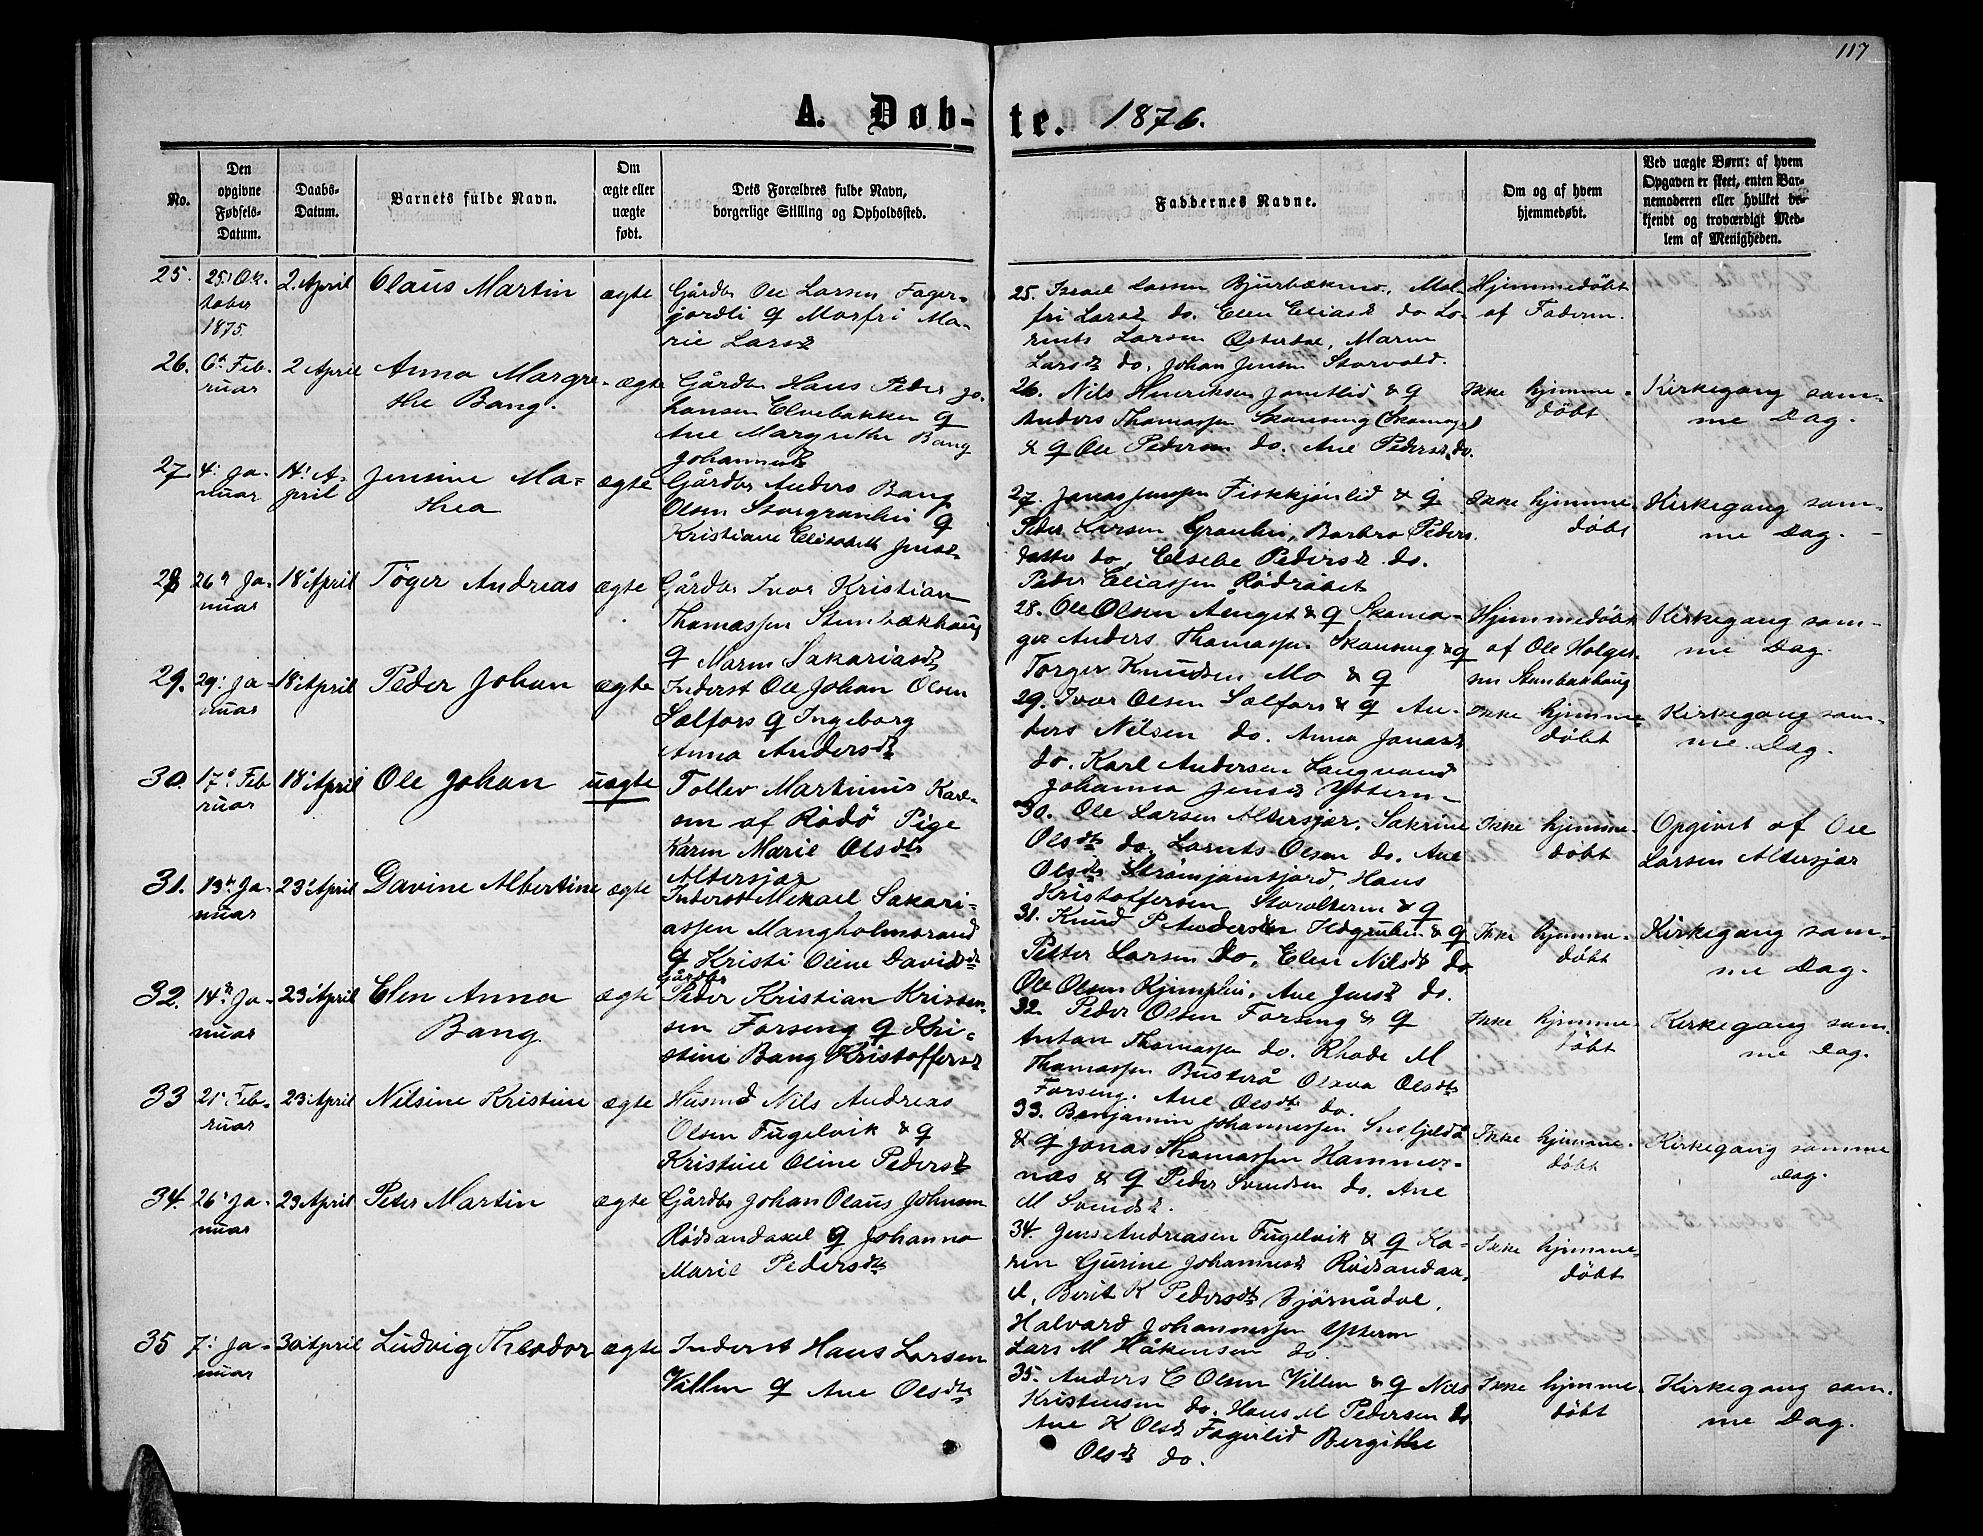 117
A. Døb-te. 1876.
No.
Den opgivne Fødsels-Datum.
Daabs-Datum.
Barnets fulde Navn.
Om ægte eller uægte født.
Dets Forældres fulde Navn, borgerlige Stilling og Opholdssted.
Faddernes Navne.
Om og af hvem hjemmedøbt.
Ved uægte Børn: af hvem Opgaven er skeet, enten Barnemoderen eller hvilket bekjendt og troværdigt Medlem af Menigheden.
25. 25' Ok-tober 1875 2. April Claus Martin ægte
Gårdbr Ole Larsen, Fager-
jordli & Marfri Ma-
rie Larsd
25. Israel Larsen Bjurbækmo, Mal-
fri Larsd do. Elen Eliasd do Lo-
rents Larsen Østerdal, Maren
Larsd do, Johan Jensen Storvold.
Hjemmedøbt
af Faderen.
26. 6' Feb-ruar 2 April Anna Margre-
the Bang. ægte
Gårdbr Hans Peder Jo-
hansen Elvebakken &
Ane Margrethe Bang
Johannesd
26. Nils Henriksen Jamtlid, & q
Anders Thomassen Skanseng
& q Ole Pedersen do. Ane Pedersd. do.
Ikke hjemme-
døbt
Kirkegang sam-
me Dag.
27 4' Ja-nuar 14' A-pril Jensine Ma-
thea ægte
Gårdbr Anders Bang
Olsen Storgranhei &
Kristiane Elisabeth Jensd.
27. Jonas Jenssen Fiskkjønlid & q
Peder Larsen Granhei, Barbro Peders-
datter do, Elsebe Pedersd do.
Peder Eliassen Rödråbet
Ikke hjemme-
døbt
Kirkegang sam-
me Dag.
28 26' Ja-nuar 18' April Töger Andreas ægte
Gårdbr Ivar Kristian
Thomassen Stenbækhaug
& Maren Sakariasd
28. Ole Olsen Aenget & q Skama-
ger Anders Thomassen Skanseng & q
Torger Knudsen Mo & q
Hjemmedøbt
af Ole Holger-
sen Stenbækhaug
Kirkegang sam-
me Dag.
29. 29' Ja-nuar 18' April Peder Johan ægte
Inderst Ole Johan Olsen
Selfors & Ingeborg
Anna Andersd
29. Ivar Olsen Selfors & q An-
ders Nilsen do. Anna Jonasd
do. Karl Andersen Langvand
Johanna Jensd Yttern
Ikke hjemme-
døbt
Kirkegang sam-
me Dag.
30. 17' Feb-ruar 18' April Ole Johan uægte
Tollev Martinus Karl-
sen af Rödö Pige
Karen Marie Olsdtr
Altersjar
30. Ole Larsen Altersjar, Sakrine
Olsdtr do. Lorents Olsen do. Ane
Olsd Strømjamsfjord, Hans
Kristoffersen Storalteren & q
Ikke hjemme-
døbt
Opgivet af Ole
Larsen Altersjar
31. 13' Ja-nuar 23' April Davine Albertine ægte
Inderst Mikael Sakari-
assen Mangholmstrand
& Kristi Oline Davidsd
31. Knud P Andersen Hægruben & q
Petter Larsen do, Elen Nilsd do
Ole Olsen Kjempehei, Ane Jensd do.
Ikke hjemme-
døbt
Kirkegang sam-
me Dag.
32. 14' Ja-nuar 23' April Elen Anna
Bang ægte
Gårdbr
Peder Kristian Kristen-
sen Forseng & Kri-
stine Bang Kristoffersd
32. Peder Olsen Forseng & q
Antan Thomassen do. Rhode M
Thomassen Busterå Olava Olsdtr
Forseng. Ane Olsdtr do.
Ikke hjemme-
døbt
Kirkegang sam-
me Dag.
33 21' Feb-ruar 23 April Nilsine Kristine ægte
Husmd Nils Andreas
Olsen Fugelvik & q
Kristine Oline Pedersd
33. Benjamin Johannessen
& q Jonas Thomassen Hammer-
næs & q Peder Svendsen do. Ane
M Svendsd.
Ikke hjemme-
døbt
Kirkegang samme
Dag.
34. 26' Ja-nuar 23 April Peter Martin ægte
Gårdbr Johan Olaus Johnsen
Rødsandaxel & Johanna
Marie Pedersdtr
34. Jens Andreasen Fugelvik & q Ka-
ren Gurine Johannesd Rødsandax-
el, Berit K Pedersdtr Bjørnådal.
Halvard Johannessen Yttern
Lars M Håkensen do
Ikke hjemme-
døbt
35 7' Ja-nuar 30 April Ludvig Theodor ægte
Inderst Hans Larsen
Villen & Ane Olsdtr
35. Anders C Olsen Villen & q Nils
Kristensen do. Hans M Pedersen do
Ane K Olsd Fagerlid Bergithe
Olsdtr do.
Ikke hjemme-
døbt
Kirkegang sam-
me Dag.